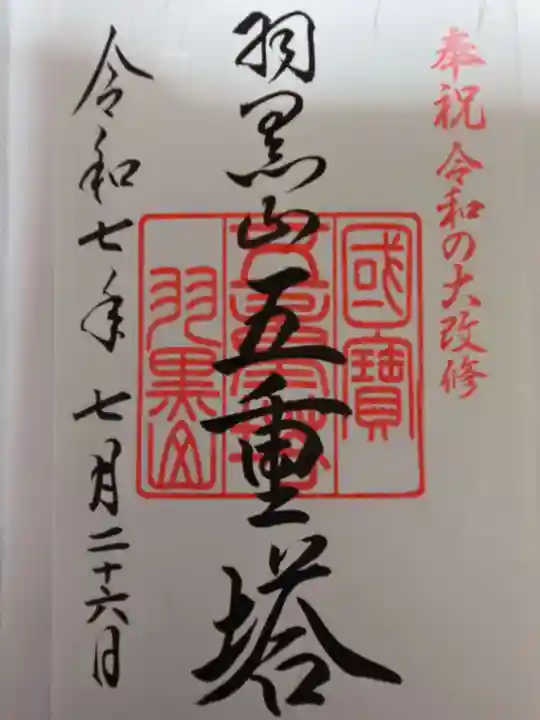 奉祝 令和の大改修
羽黒山五重塔
國寶
五重塔
羽黒山
令和七年 七月二十六日